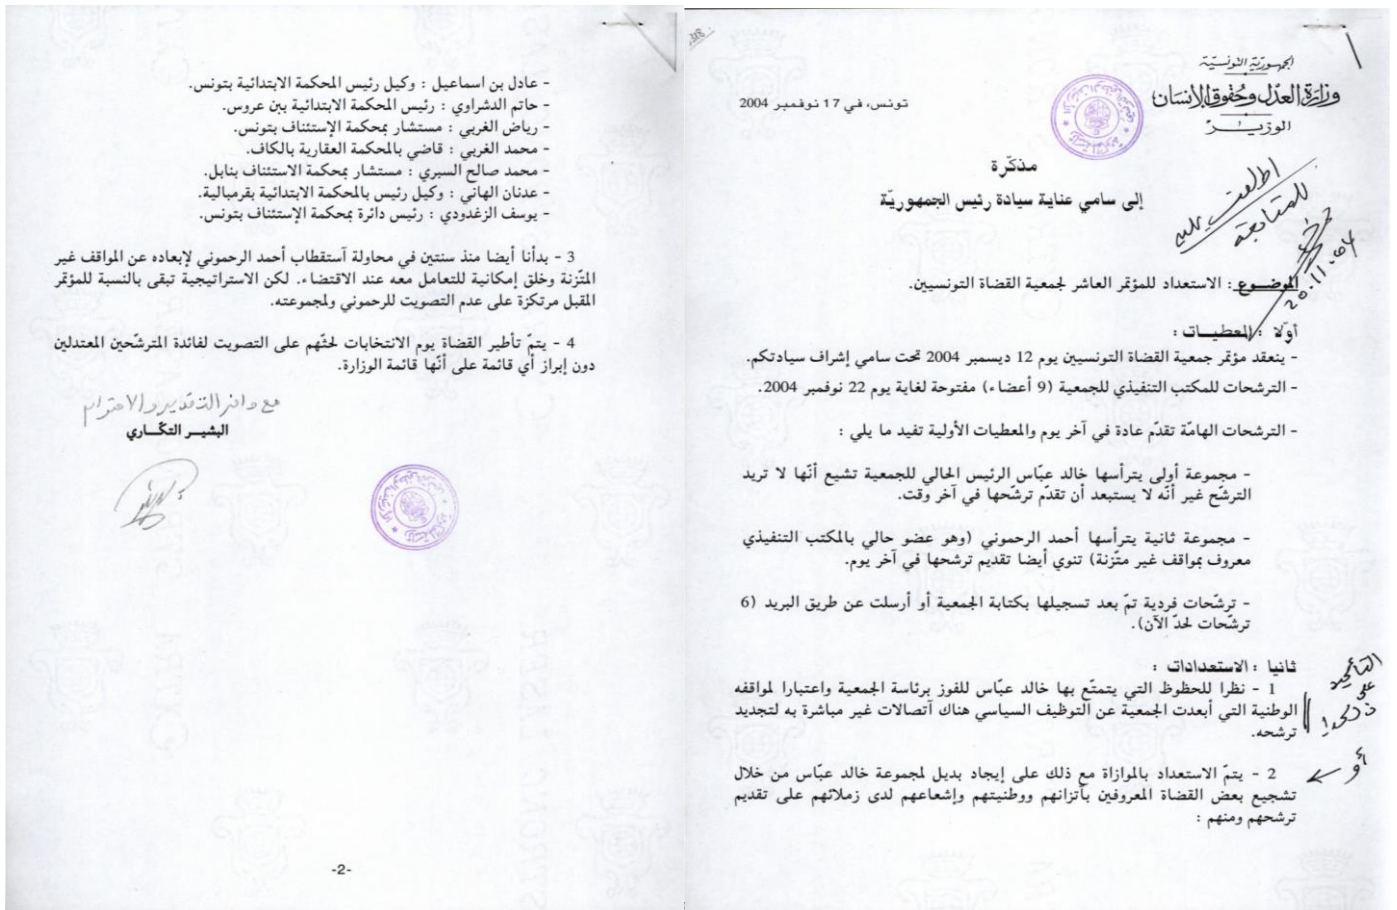 الجمهورية التونسية
وزارة العدل وحقوق الإنسان
الوزيـــر
تونس، في 17 نوفمبر 2004
مذكّرة
إلى سامي عناية سيادة رئيس الجمهوريّة
اطلعت عليه
للمتابعة
20.11.04
الموضـــوع : الاستعداد للمؤتمر العاشر لجمعية القضاة التونسيين.
أوّلا : المعطيـــات :
- ينعقد مؤتمر جمعية القضاة التونسيين يوم 12 ديسمبر 2004 تحت سامي إشراف سيادتكم.
- الترشحات للمكتب التنفيذي للجمعية (9 أعضاء) مفتوحة لغاية يوم 22 نوفمبر 2004.
- الترشحات الهامّة تقدّم عادة في آخر يوم والمعطيات الأولية تفيد ما يلي :
- مجموعة أولى يترأسها خالد عبّاس الرئيس الحالي للجمعية تشيع أنّها لا تريد
الترشّح غير أنّه لا يستبعد أن تقدّم ترشّحها في آخر وقت.
- مجموعة ثانية يترأسها أحمد الرحموني (وهو عضو حالي بالمكتب التنفيذي
معروف بمواقف غير متّزنة) تنوي أيضا تقديم ترشحها في آخر يوم.
- ترشّحات فردية تمّ بعد تسجيلها بكتابة الجمعية أو أرسلت عن طريق البريد (6
ترشّحات لحدّ الآن).
ثانيا : الاستعدادات :
1 - نظرا للحظوظ التي يتمتّع بها خالد عبّاس للفوز برئاسة الجمعية واعتبارا لمواقفه
الوطنية التي أبعدت الجمعية عن التوظيف السياسي هناك آتصالات غير مباشرة به لتجديد
ترشحه.
على
أو
2 - يتمّ الاستعداد بالموازاة مع ذلك على إيجاد بديل لمجموعة خالد عبّاس من خلال
تشجيع بعض القضاة المعروفين بآتزانهم ووطنيتهم وإشعاعهم لدى زملائهم على تقديم
ترشحهم ومنهم :
- عادل بن اسماعيل : وكيل رئيس المحكمة الابتدائية بتونس.
- حاتم الدشراوي : رئيس المحكمة الابتدائية ببن عروس.
- رياض الغربي : مستشار بمحكمة الإستئناف بتونس.
- محمد الغربي : قاضي بالمحكمة العقارية بالكاف.
- محمد صالح السبري : مستشار بمحكمة الاستئناف بنابل.
- عدنان الهاني : وكيل رئيس بالمحكمة الابتدائية بقرمبالية.
- يوسف الزغدودي : رئيس دائرة بمحكمة الإستئناف بتونس.
3 - بدأنا أيضا منذ سنتين في محاولة آستقطاب أحمد الرحموني لإبعاده عن المواقف غير
المتّزنة وخلق إمكانية للتعامل معه عند الاقتضاء. لكن الاستراتيجية تبقى بالنسبة للمؤتمر
المقبل مرتكزة على عدم التصويت للرحموني ولمجموعته.
4 - يتمّ تأطير القضاة يوم الانتخابات لحثّهم على التصويت لفائدة المترشّحين المعتدلين
دون إبراز أي قائمة على أنّها قائمة الوزارة.
مع وافر التقدير والاحترام
البشيـــر التكّـــاري
-2-